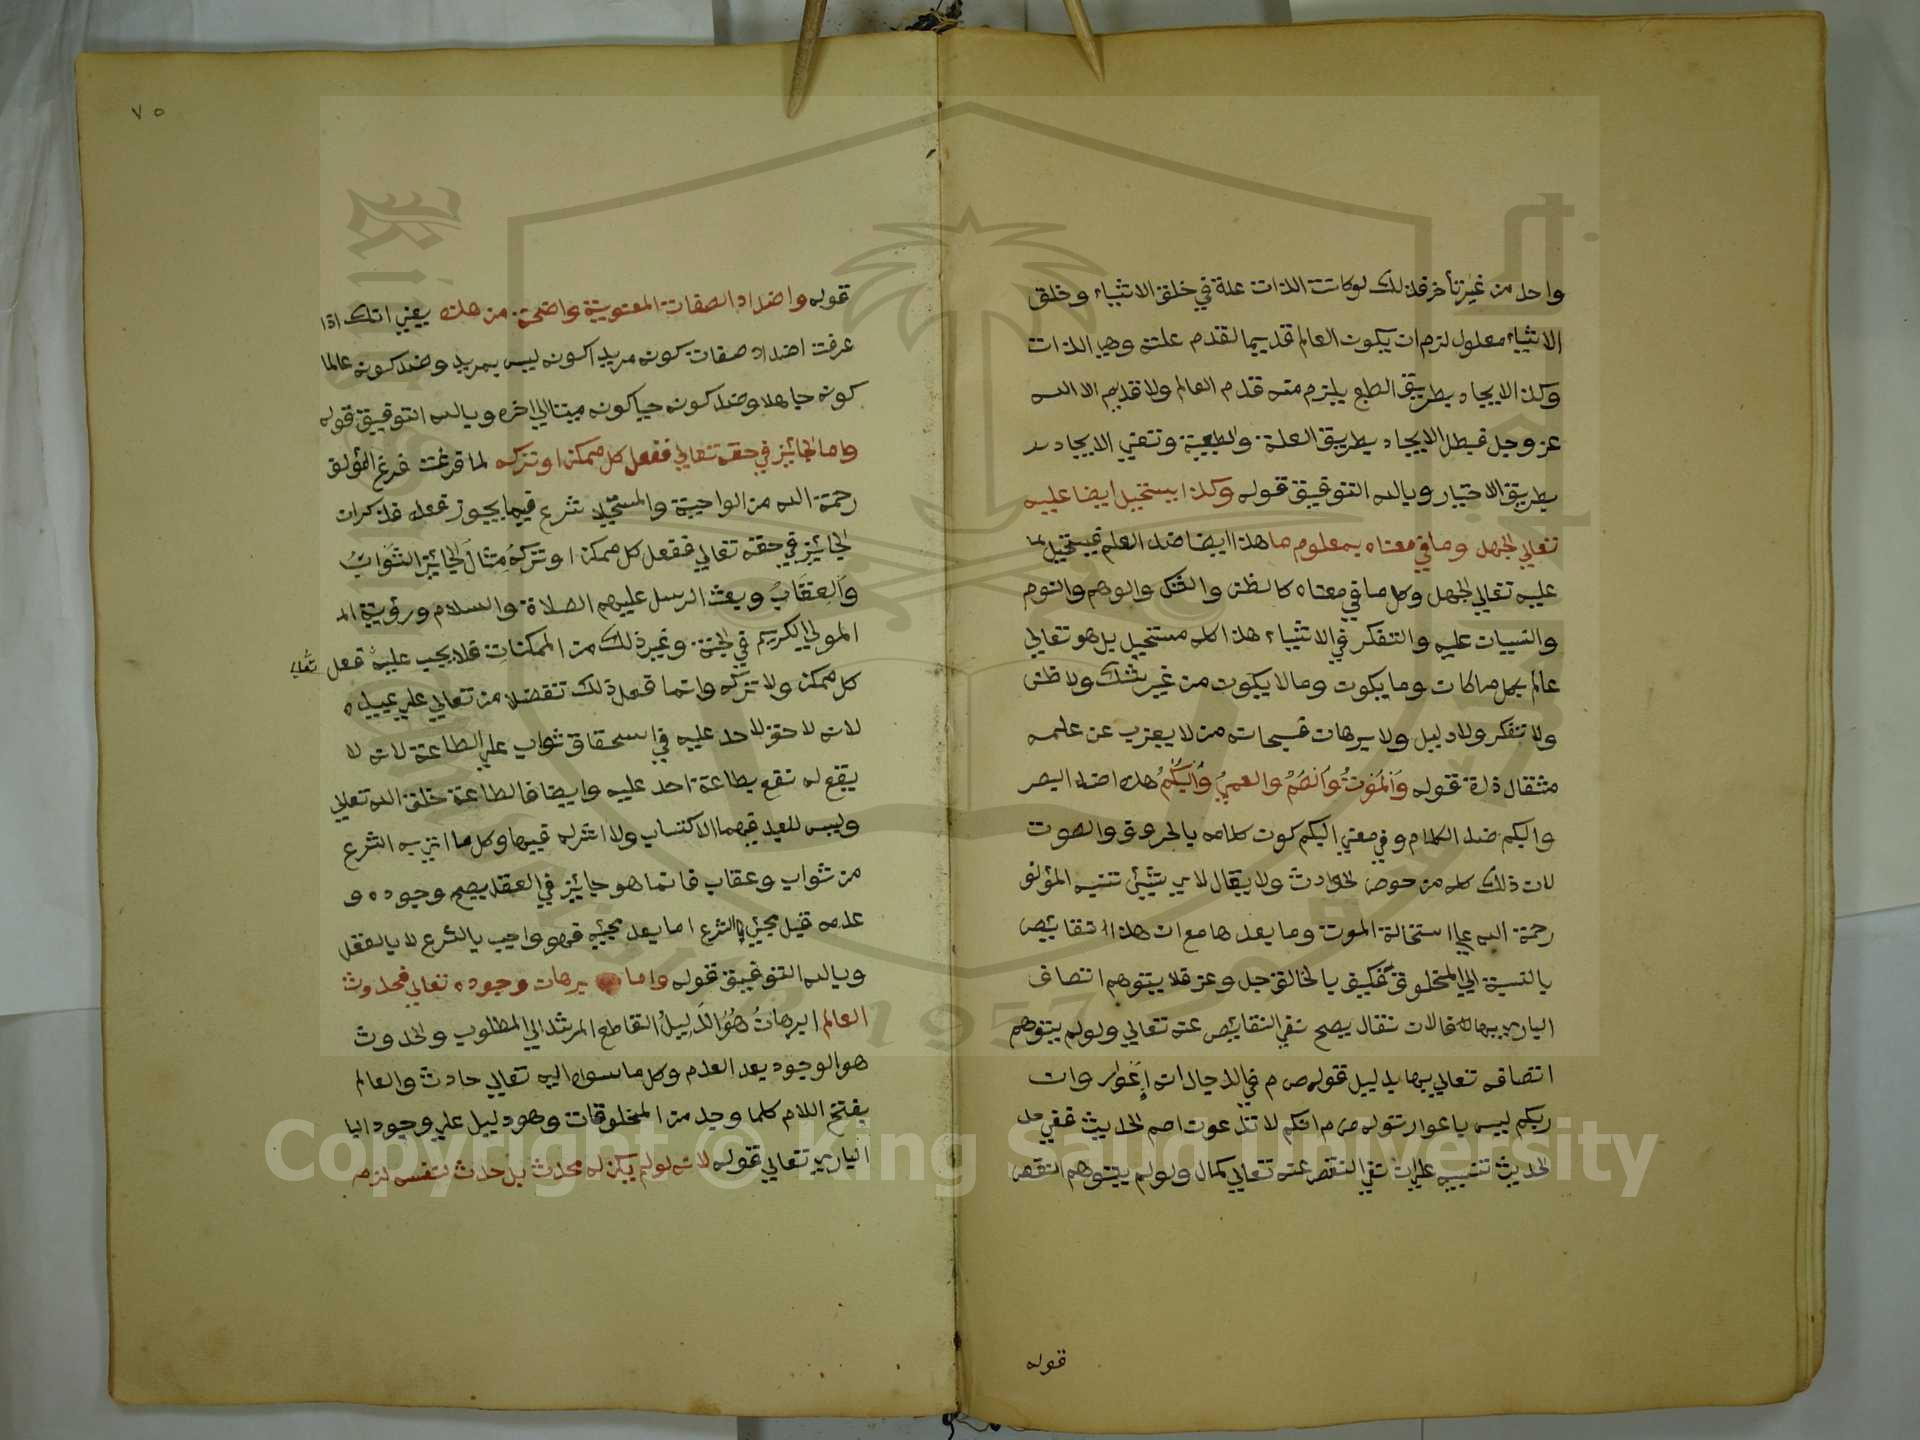 واحد من غير تأخر فذلك لوكانت الذات علة في خلق الاشياء وخلق
الاشياء معلول لزم ان يكون العالم قديما لقدم علته وهي الذات
وكذا الايجاد بطريق الطبع يلزم منه قدم العالم ولا قديم الا الله
عز وجل فبطل الايجاد بطريق العلة والطبعية وتعين الايجاد
بطريق الاختيار وبالله التوفيق قوله وكذا يستحيل ايضا عليه
تعالى الجهل وما في معناه بمعلوم ما هذا ايضا ضد العلم فيستحيل
عليه تعالى الجهل وكل ما في معناه كالظن والشك والوهم والنوم
والنسيان عليه والتفكر في الاشياء هذا كله مستحيل بل هو تعالى
عالم بكل ما كان وما يكون وما لا يكون من غير شك ولا ظن
ولا تفكر ولا دليل ولا برهان فسبحانه من لا يعزب عن علمه
مثقال ذرة قوله والموت والصم والعمي والبكم هذه اضداد البصر
والبكم ضد الكلام وفي معنى البكم كون كلامه بالحروف والصوت
لان ذلك كله من حوص الحوادث ولا يقال لاي شيئ تنبيه المؤلف
رحمة الله على استحالة الموت وما بعدها مع ان هذه النقايص
بالنسبة الى المخلوق فكيف بالخالق جل وعز فلا يتوهم اتصاف
الباري بها فالان نقال يصح نفي النقايص عنه تعالى ولو لم يتوهم
اتصافه تعالى بها بدليل قوله ص م في الدجال انه اعوار وان
ربكم ليس باعوار قوله ص م انكم لا تدعون اصم الحديث ففي
الحديث تنبيه على ان نفي النقص عنه تعالى كمال ولو لم يتوهم النقص
قوله
٧٥
قوله واضداد الصفات المعنوية واضحة من هذه يعني انك اذا
عرفت اضداد صفات كونه مريدا كونه ليس بمريد وضد كونه عالما
كونه جاهلا وضد كونه حيا كونه ميتا الى اخره وبالله التوفيق قوله
واما الجائز في حقه تعالى ففعل كل ممكن او تركه لما فرغت فرغ المؤلف
رحمة الله من الواجبة والمستحيل شرع فيما يجوز فعله فذكر ان
الجائز في حقه تعالى ففعل كل ممكن او تركه مثال الجائز الثواب
والعقاب وبعث الرسل عليهم الصلاة والسلام ورؤية الم
المولى الكريم في الجنة وغير ذلك من الممكنات فلا يجب عليه فعل تعالى
كل ممكن ولا تركه وانما فعل ذلك تفضلا من تعالى على عبيده
لانه لا حق لاحد عليه في استحقاق ثواب على الطاعة لانه لا
يقع له نفع بطاعة احد عليه وايضا فالطاعة خلق الله تعالى
وليس للعبد فيهما الا كتساب ولا اثر له فيها وكل ما اتى به الشرع
من ثواب وعقاب فانما هو جايز في العقل يصح وجوده و
عدمه قبل مجيئ الشرع اما بعد مجيئه فهو واجب بالشرع لا بالعقل
وبالله التوفيق قوله واما برهان وجوده تعالى فحدوث
العالم البرهان هو الدليل القاطع المرشد الى المطلوب والحدوث
هو الوجود بعد العدم وكل ما سواه اليه تعالى حادث والعالم
بفتح اللام كلما وجد من المخلوقات وهو دليل على وجود البا
الباري تعالى قوله لانه لو لم يكن له محدث بل حدث لنفسه لزم
Copyright © King Saud University
1957